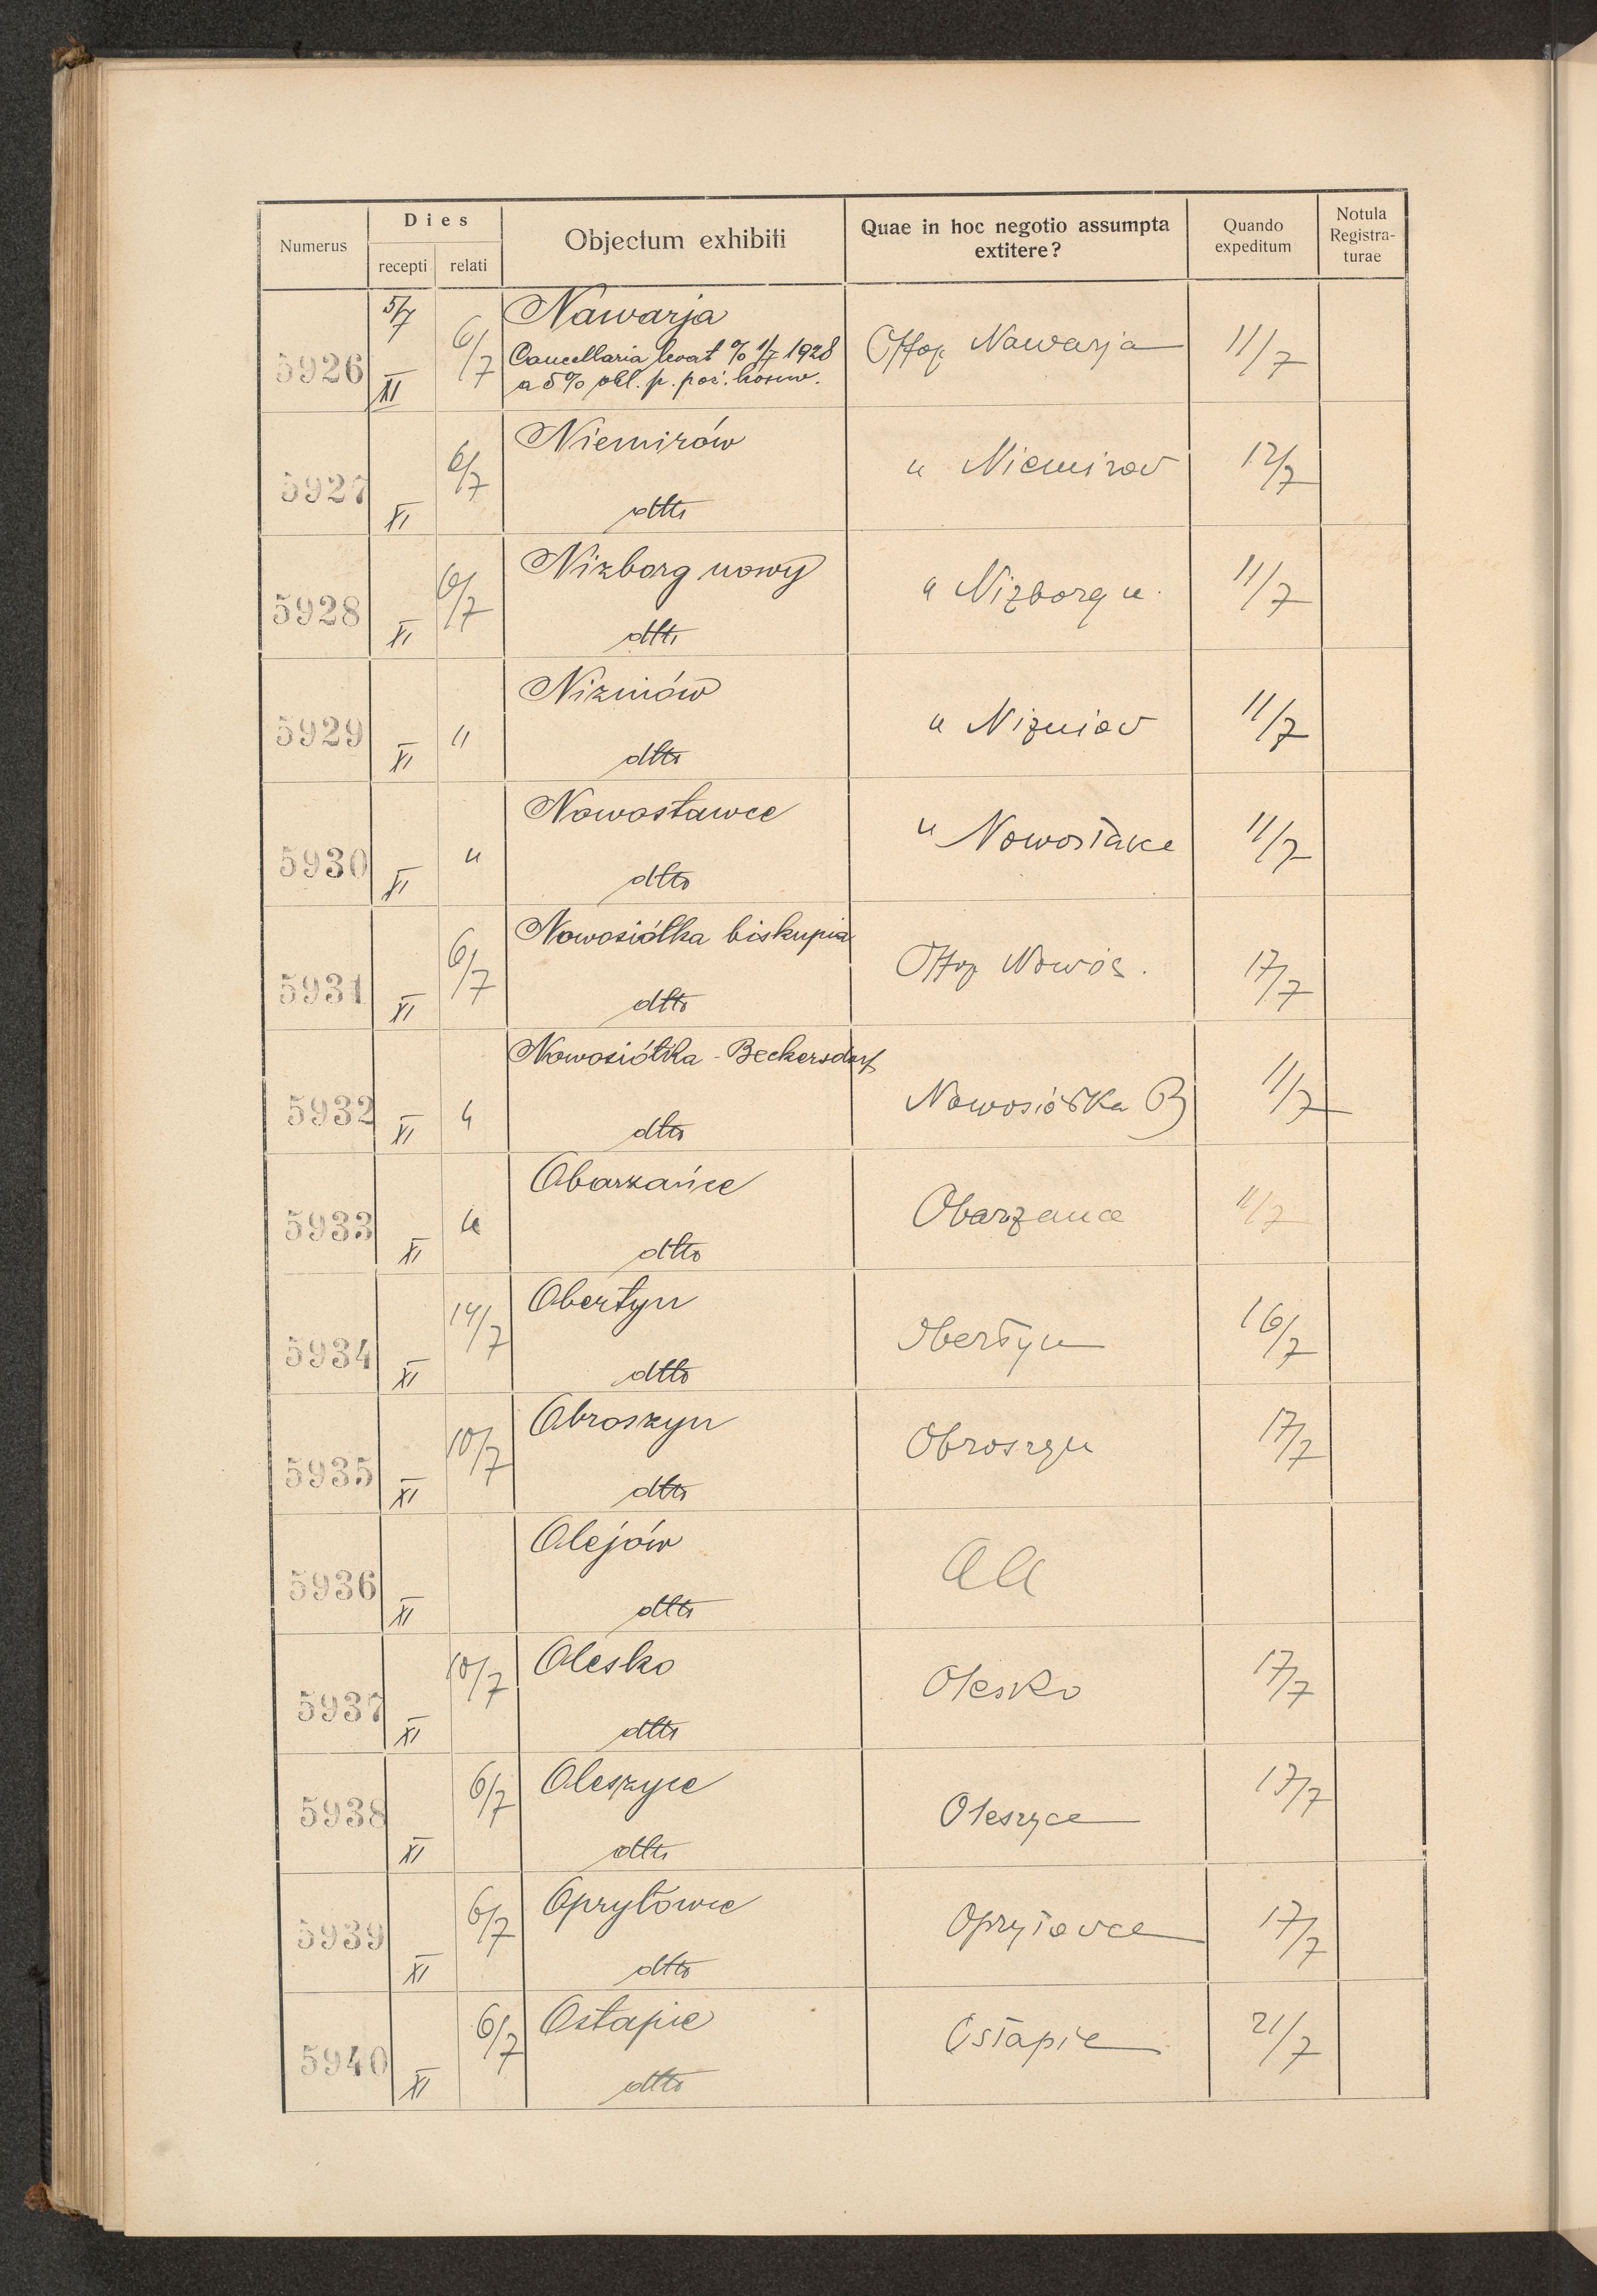 Numerus
Dies
recepti relati
Objectum exhibiti
Quae in hoc negotio assumpta
extitere?
Quando
expeditum
Notula
Registra-
turae
5926 5/7 XI 6/7 Nawarja Nawarja 11/7
Cancellaria levat % 1/7 1928
a 5% obl. p. poż. konw.
5927 XI 6/7 Niemirów " Niemirov 12/7
dtto
5928 XI 6/7 Nizborg nowy " Nizborg n. 11/7
dtto
5929 XI " Nizniów " Nizniov 11/7
dtto
5930 XI " Nowostawce " Nowostavce 11/7
dtto
5931 XI 6/7 Nowosiółka biskupia Nowos. 17/7
dtto
5932 XI " Nowosiółka - Beckersdorf Nowosiółka B 11/7
dtto
5933 XI " Obarzańce Obarzance 11/7
dtto
5934 XI 14/7 Obertyn Obertyn 16/7
dtto
5935 XI 10/7 Obroszyn Obroszyn 17/7
dtto
5936 XI Olejów
dtto
5937 XI 10/7 Olesko Olesko 17/7
dtto
5938 XI 6/7 Oleszyce Oleszyce 17/7
dtto
5939 XI 6/7 Opryłowce Opryłovce 17/7
dtto
5940 XI 6/7 Ostapie Ostapie 21/7
dtto